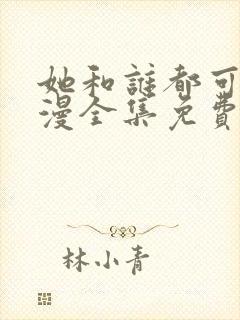 她和誰都可
漫全集免費
林小青